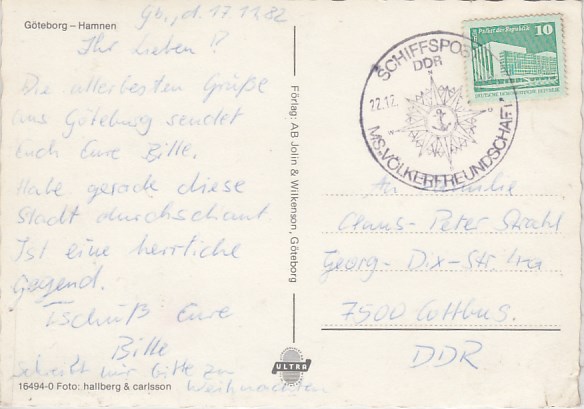 Göteborg – Hamnen
Gb., d. 17.11.82
Ihr Lieben!
Die allerbesten Grüße
aus Göteburg sendet
Euch Eure Bille.
Habe gerade diese
Stadt durchschaut
Ist eine herrliche
Gegend.
Tschüß Eure
Bille
schreibt mir bitte zu
Weihnachten
16494-0 Foto: hallberg & carlsson
Förlag: AB Jolin & Wilkenson, Göteborg
ULTRA
SCHIFFSPOST
DDR
22.12.
MS·VÖLKERFREUNDSCHAFT
Palast der Republik
10
DEUTSCHE DEMOKRATISCHE REPUBLIK
An Familie
Claus-Peter Strahl
Georg-Dix-Str. 4a
7500 Cottbus.
DDR